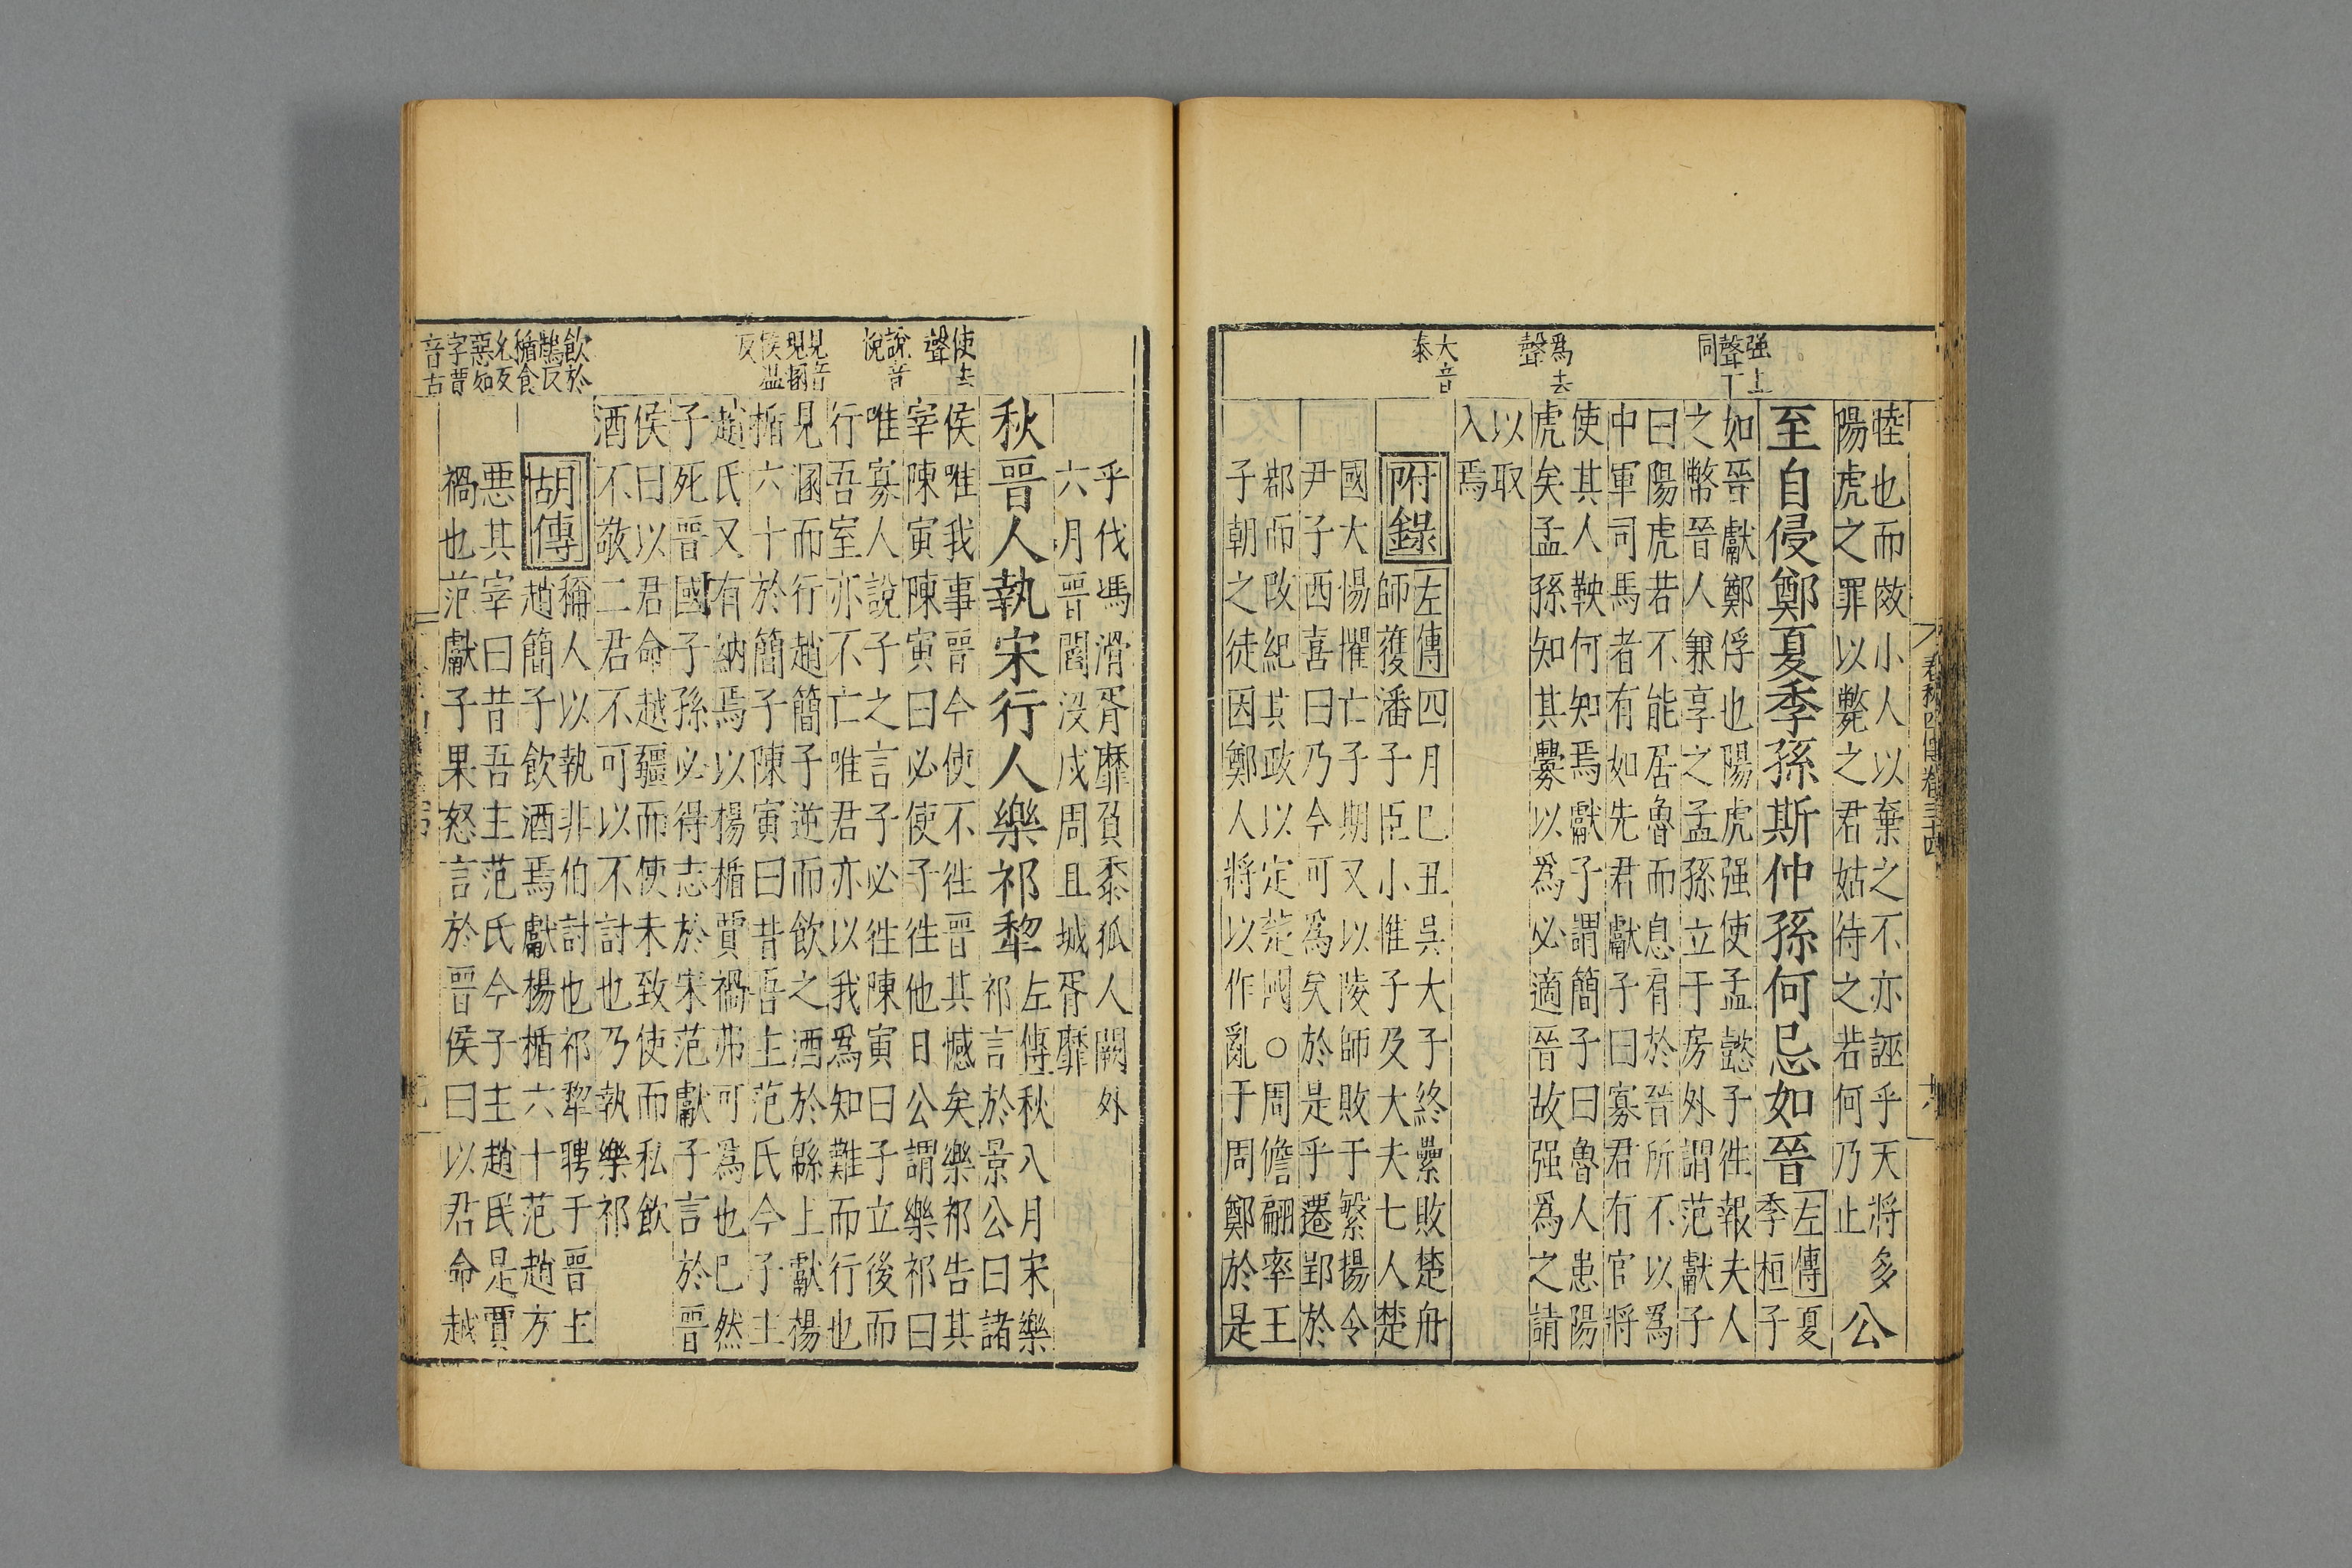 春秋四傳卷三十四
十八
强上
聲下
同
爲去
聲
大音
泰
睦也而效小人以棄之不亦誣乎天將多
陽虎之罪以斃之君姑待之若何乃止
公
至自侵鄭夏季孫斯仲孫何忌如晉
左傳夏
季桓子
如晉獻鄭俘也陽虎强使孟懿子徃報夫人
之幣晉人兼享之孟孫立于房外謂范獻子
曰陽虎若不能居魯而息肩於晉所不以爲
中軍司馬者有如先君獻子曰寡君有官將
使其人鞅何知焉獻子謂簡子曰魯人患陽
虎矣孟孫知其釁以爲必適晉故强爲之請
以取
入焉
附錄
左傳四月巳丑吳大子終纍敗楚舟
師獲潘子臣小惟子及大夫七人楚
國大惕懼亡子期又以陵師敗于繁揚令
尹子西喜曰乃今可爲矣於是乎遷郢於
鄀而改紀其政以定楚國○周儋翩率王
子朝之徒因鄭人將以作亂于周鄭於是
使去
聲
說音
悅
見音
現溷
侯温
反
飮於
鴆反
楯食
允反
惡如
字賈
音古
乎伐馮滑胥靡負黍狐人闕外
六月晉閻沒戍周且城胥靡
秋晉人執宋行人樂祁犂
左傳秋八月宋樂
祁言於景公曰諸
侯唯我事晉今使不徃晉其憾矣樂祁告其
宰陳寅陳寅曰必使子徃他日公謂樂祁曰
唯寡人說子之言子必徃陳寅曰子立後而
行吾室亦不亡唯君亦以我爲知難而行也
見溷而行趙簡子逆而飮之酒於緜上獻楊
楯六十於簡子陳寅曰昔吾主范氏今子主
趙氏又有納焉以楊楯賈禍弗可爲也巳然
子死晉國子孫必得志於宋范獻子言於晉
侯曰以君命越疆而使未致使而私飮
酒不敬二君不可以不討也乃執樂祁
胡傳
稱人以執非伯討也祁犂聘于晉主
趙簡子飮酒焉獻楊楯六十范趙方
惡其宰曰昔吾主范氏今子主趙氏是賈
禍也范獻子果怒言於晉侯曰以君命越